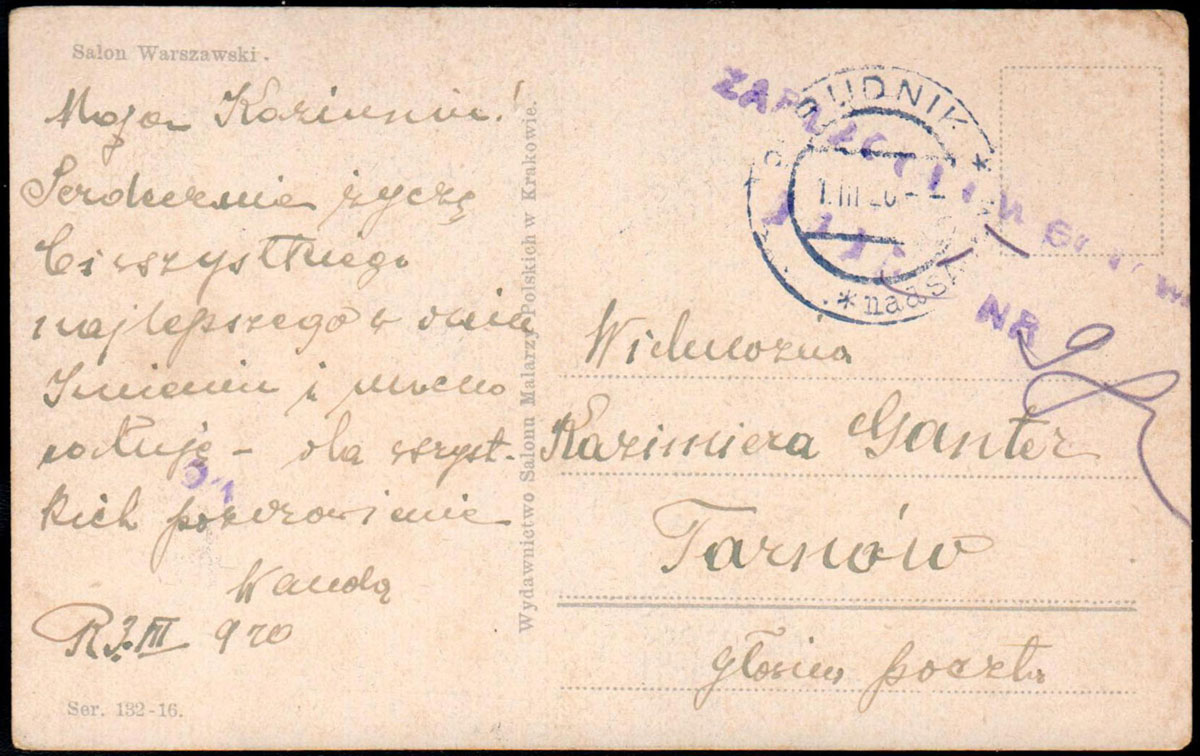 Salon Warszawski.
Moja Kaziuniu!
Serdecznie życzę
Ci wszystkiego
najlepszego w dniu
Imienin i mocno
całuję – dla wszyst-
kich pozdrowienie
Wanda
R 3.III 920
Ser. 132-16.
Wydawnictwo Salonu Malarzy Polskich w Krakowie.
RUDNIK *
1.III 20
* nad SA
ZAPŁACONO GOTÓWK
NR
Wielmożna
Kazimiera Ganter
Tarnów
poczta